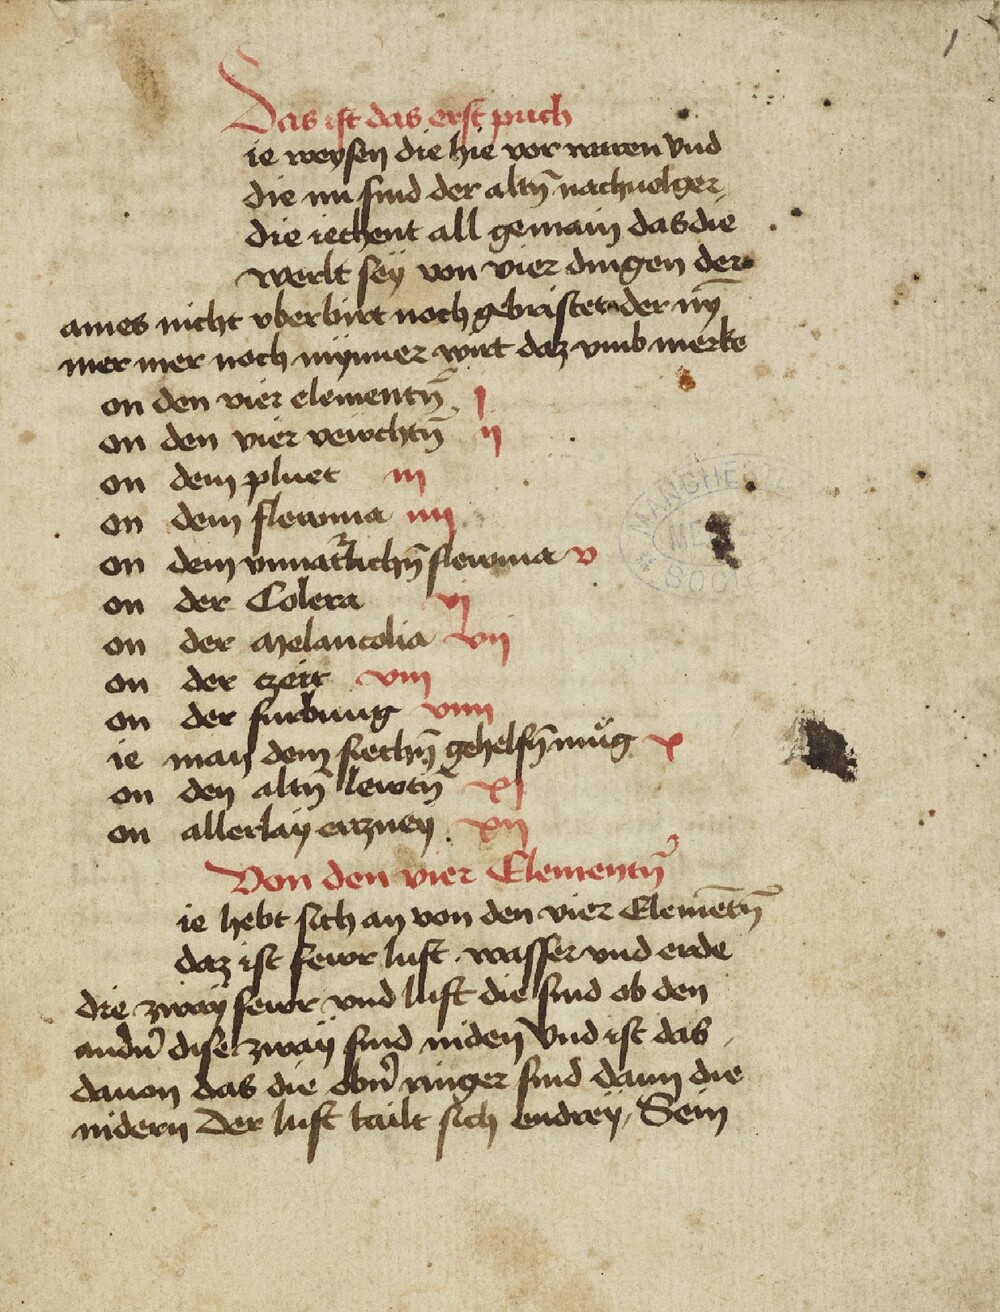 1
Das ist das erst puch
ie weysen die hie vor waren vnd
die nu sind der altn̄ nachuolger
die iechent all gemain das die
werlt sey von vier dingen der
ames nicht vberbirt noch gebristet der nȳ
mer mer noch mynner wirt daz vmb merke
on den vier elementn̄ j
on den vier vewchtn̄ ij
on dem pluet iij
on dem flewma iiij
on dem vnnatrlichn̄ flewma v
on der Colera vj
on der Melancolia vij
on der czeit viij
on der furbung viiij
ie man dem siechn̄ gehelfn̄ mug x
on den altn̄ lewtn̄ xj
on allerlay erczney xij
Von den vier Elementn̄
ie hebt sich an von den vier Elemētn̄
daz ist fewr luft wasser vnd erde
die zway fewr vnd luft die sind ob den
andn̄ dise zway sind niden Vnd ist das
dauon das die obn̄ ringer sind dann die
nidern Der luft tailt sich endrey Sein
MANCHESTER
MEDICAL
SOCIETY